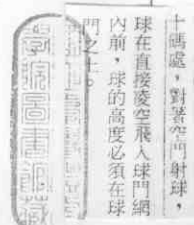 十碼處，對著空門射球，
球在直接凌空飛入球門網
內前，球的高度必須在球
門之上。
學院圖書館藏